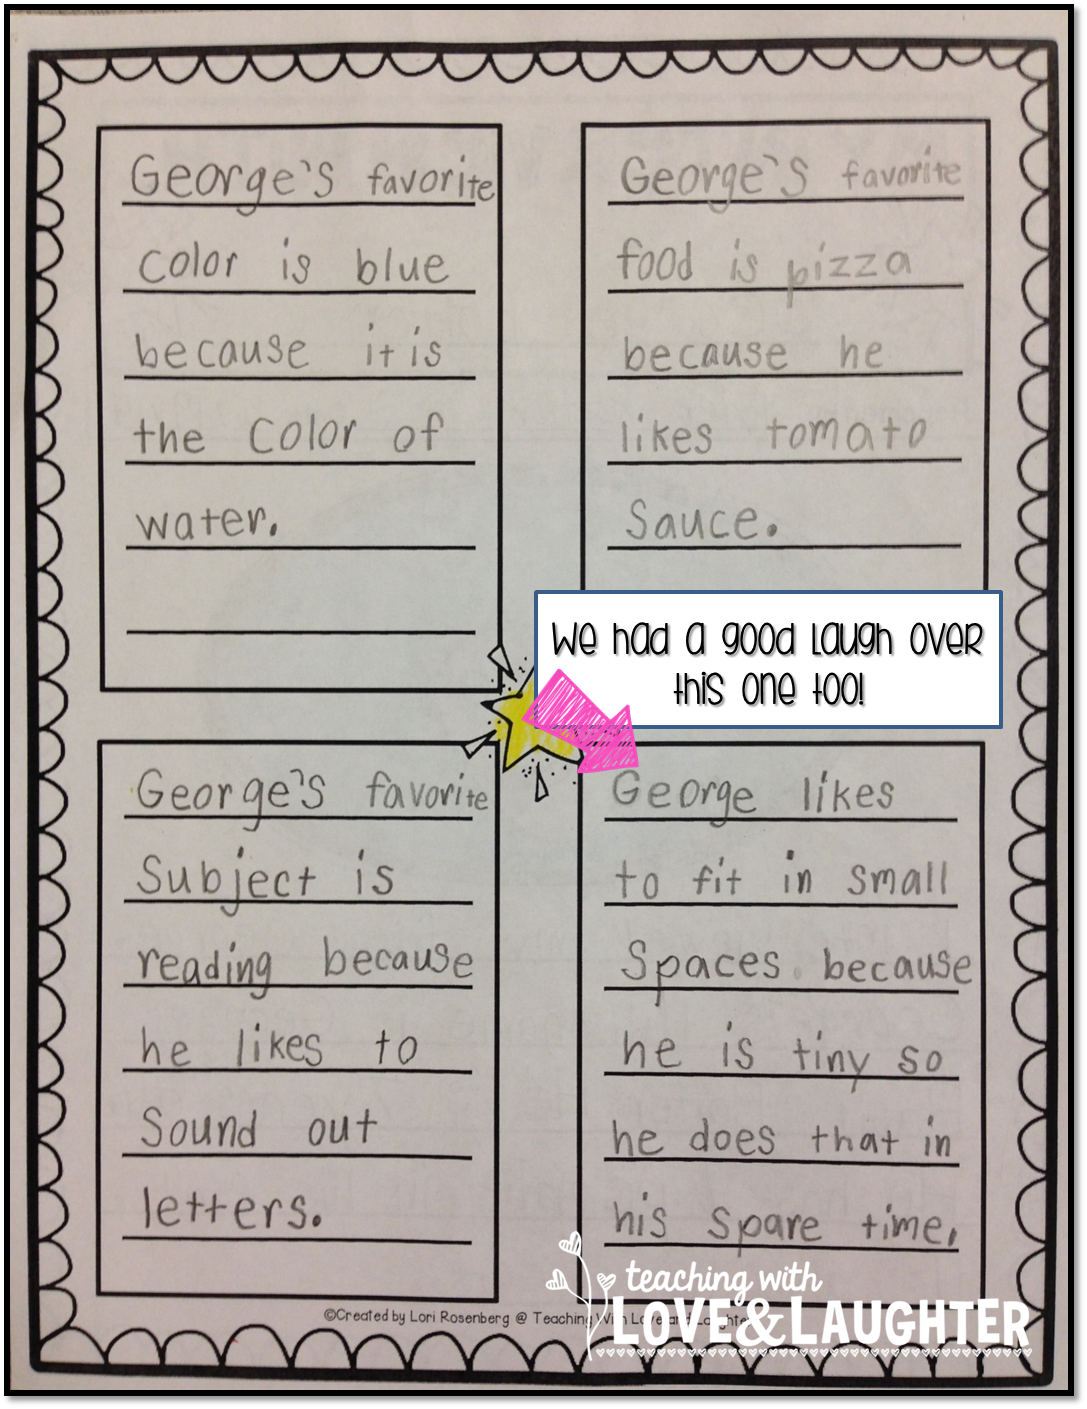 George's favorite
color is blue
because it is
the color of
water.
George's favorite
food is pizza
because he
likes tomato
Sauce.
We had a good laugh over
this one too!
George's favorite
Subject is
reading because
he likes to
Sound out
letters.
George likes
to fit in small
Spaces because
he is tiny so
he does that in
his spare time.
©Created by Lori Rosenberg @ Teaching With Love and Laughter
teaching with
LOVE&LAUGHTER